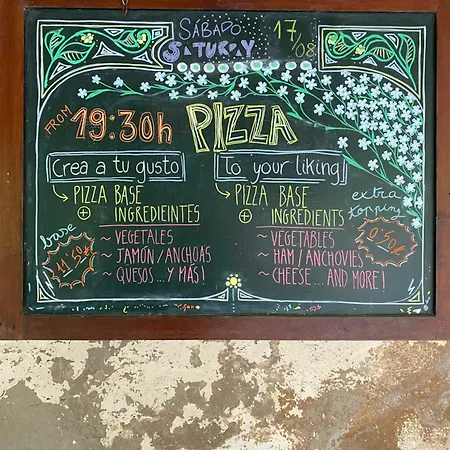 SÁBADO
SATURDAY
17/08
FROM 19:30h PIZZA
Crea a tu gusto
To your liking
PIZZA BASE
+ INGREDIEINTES
~ VEGETALES
~ JAMÓN/ANCHOAS
~ QUESOS...Y MÁS!
base
11'50€
PIZZA BASE
+ INGREDIENTS
~ VEGETABLES
~ HAM/ANCHOVIES
~ CHEESE...AND MORE!
extra
topping
0'50€